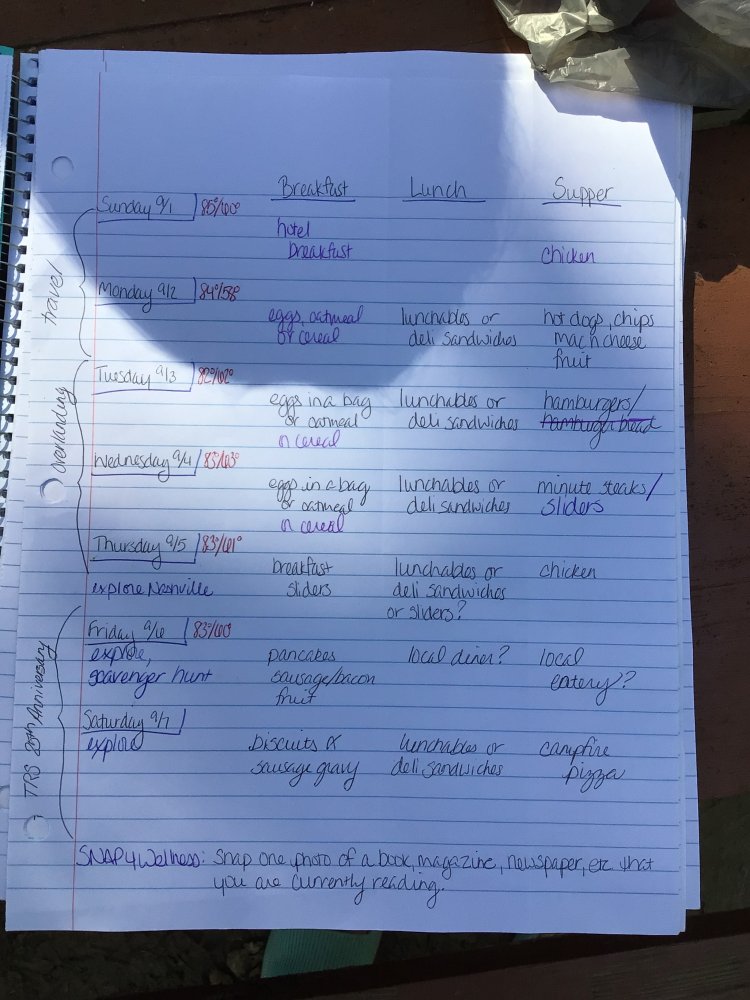 Breakfast Lunch Supper
Sunday 9/1 85°/60°
hotel
breakfast chicken
Monday 9/2 84°/58°
eggs, oatmeal lunchables or hot dogs, chips
or cereal deli sandwiches mac n cheese
fruit
Tuesday 9/3 82°/62°
eggs in a bag lunchables or hamburgers/
or oatmeal deli sandwiches hamburger bread
or cereal
Wednesday 9/4 83°/63°
eggs in a bag lunchables or minute steaks/
or oatmeal deli sandwiches sliders
or cereal
Thursday 9/5 83°/61°
breakfast lunchables or chicken
explore Nashville sliders deli sandwiches
or sliders?
Friday 9/6 83°/60°
explore, pancakes local diner? local
scavenger hunt sausage/bacon eatery?
fruit
Saturday 9/7
explore biscuits & lunchables or campfire
sausage gravy deli sandwiches pizza
travel
overlanding
TTRS 25th Anniversary
SNAP4Wellness: Snap one photo of a book, magazine, newspaper, etc. that
you are currently reading.